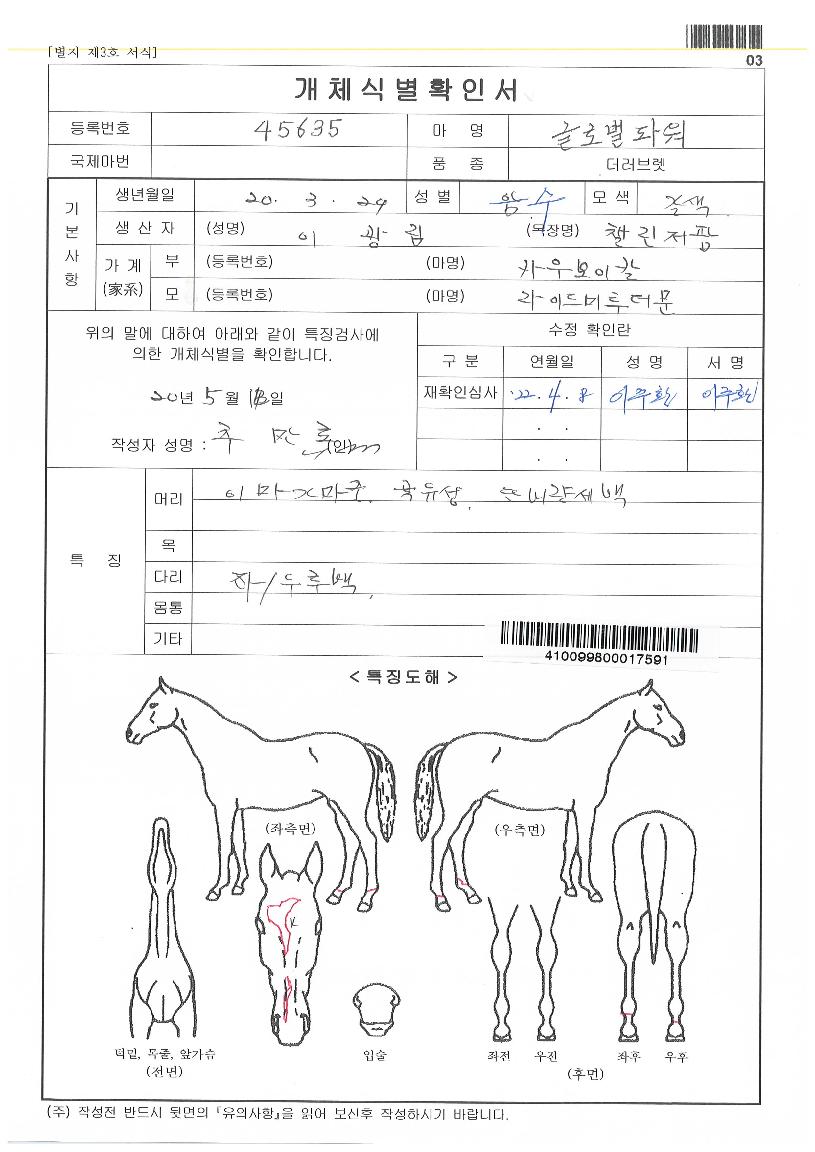 [별지 제3호 서식]
03
개체식별확인서
등록번호 45635 마 명 글로벌파워
국제마번 품 종 더러브렛
기본사항
생년월일 20. 3. 29 성 별 암 수 모 색 갈색
생 산 자 (성명) 이 광 림 (목장명) 챌린저팜
가 계 (家系) 부 (등록번호) (마명) 카우보이칼
모 (등록번호) (마명) 라이드미투더문
위의 말에 대하여 아래와 같이 특징검사에
의한 개체식별을 확인합니다.
20년 5월 18일
작성자 성명 : 추 만 (인)
수정 확인란
구 분 연월일 성 명 서 명
재확인심사 '22. 4. 8 이주환 이주환
. .
. .
특 징
머리
목
다리
몸통
기타
410099800017591
< 특징도해 >
(좌측면) (우측면)
턱밑, 목줄, 앞가슴 입술 좌전 우진 좌후 우후
(전면) (후면)
(주) 작성전 반드시 뒷면의 『유의사항』을 읽어 보신후 작성하시기 바랍니다.